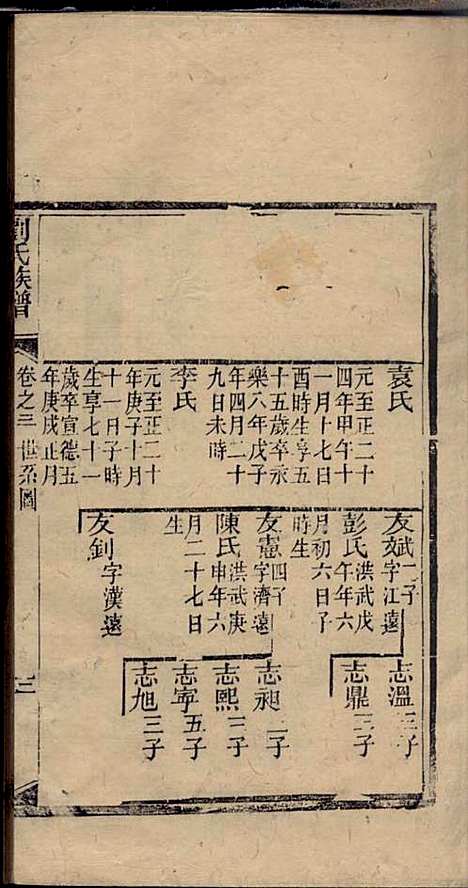 袁氏
元至正二十
四年甲午十
一月十七日
酉時生享五
十五歲卒永
樂八年戊子
年四月二十
九日未時
李氏
元至正二十
年庚子十月
十一日子時
生享七十一
歲卒宣德五
年庚戌正月
友斌 二子 字江遠
彭氏 洪武戊午年六
月初六日子
時生
友憲 四子 字濟遠
陳氏 洪武庚申年六
月二十七日
生
友釗 字漢遠
志溫 三子
志鼎 三子
志昶 二子
志熙 三子
志寧 五子
志旭 三子
劉氏族譜 卷之三 世系圖 三